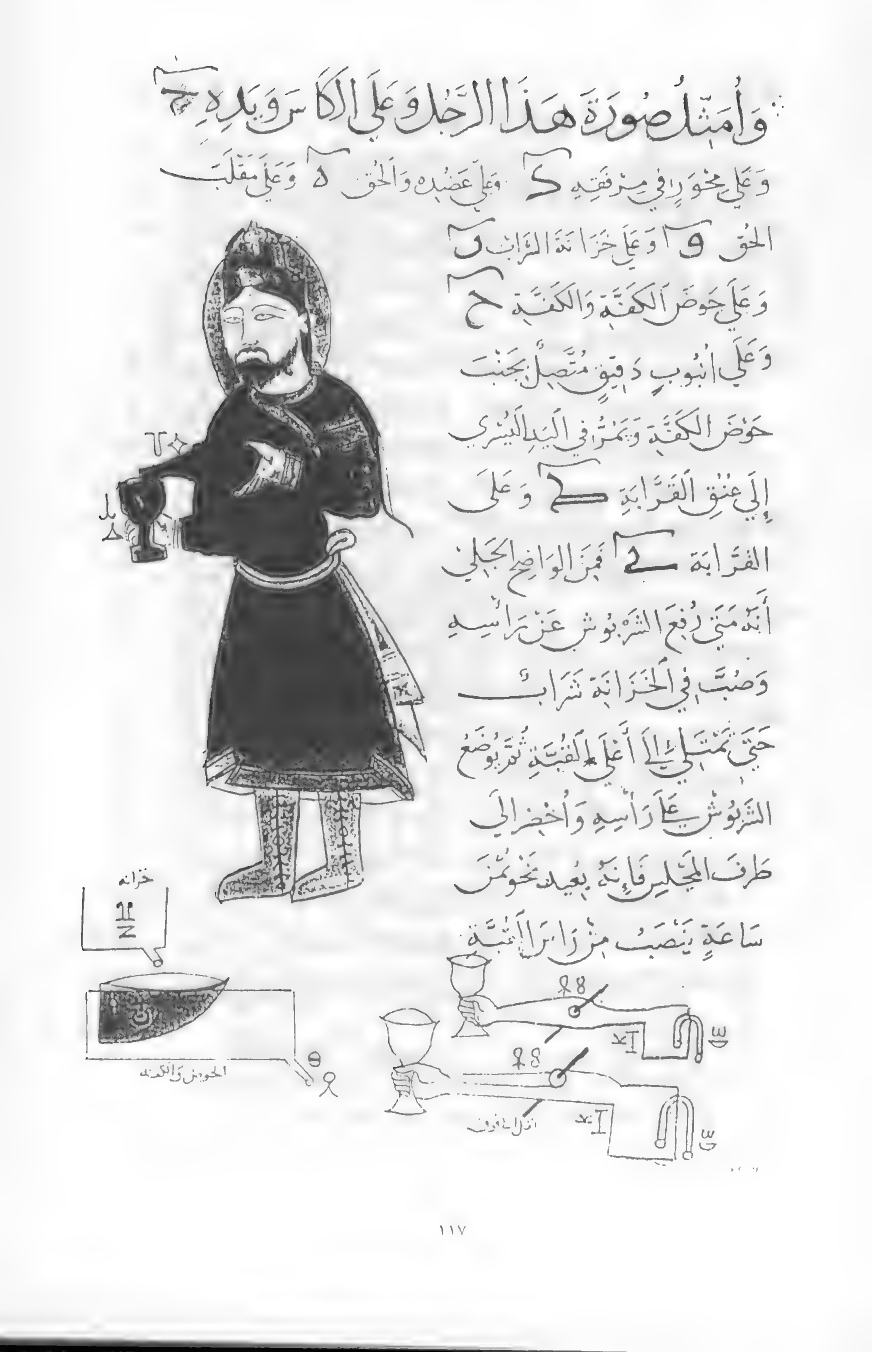 وَأُمَثِّلُ صُورَةَ هَذَا الرَّجُلِ وَعَلَى الكَأسِ وَيَدِهِ ج
وَعَلَى مِحْوَرٍ فِي مِرْفَقِهِ د وَعَلَى عَضُدِهِ وَالحُقِّ ه وَعَلَى مَقْلَبِ
الحُقِّ و وَعَلَى خَزَانَةِ الشَّرَابِ ز
وَعَلَى حَوْضِ الكَفَّةِ وَالكَفَّةِ ح
وَعَلَى أُنبُوبٍ دَقِيقٍ مُتَّصِلٍ بِجَنْبِ
حَوْضِ الكَفَّةِ وَيَمُرُّ فِي اليَدِ اليُسْرَى
إِلَى عُنُقِ القَرَّابَةِ ط وَعَلَى
القَرَّابَةِ ي فَمِنَ الوَاضِحِ الجَلِيِّ
أَنَّهُ مَتَى رُفِعَ الشَّرْبُوشُ عَنْ رَأْسِهِ
وَصُبَّ فِي الخَزَانَةِ شَرَابٌ
حَتَّى تَمْتَلِئَ إِلَى أَعْلَى القُبَّةِ ثُمَّ يُوضَعُ
الشَّرْبُوشُ عَلَى رَأْسِهِ وَأُحْضِرَ إِلَى
طَرَفِ المَجْلِسِ فَإِنَّهُ بُعَيْدَ نَحْوِ ثُمْنِ
سَاعَةٍ يَنْصَبُّ مِنْ
خزانه
الحوض والكفه
١١٧